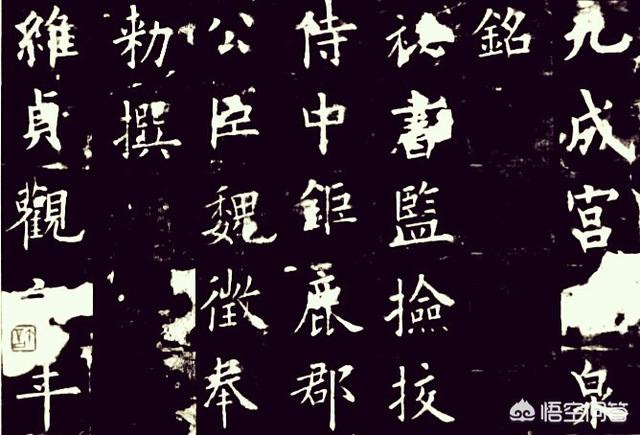 九成宮泉
銘
秘書監撿挍
侍中鉅鹿郡
公臣魏徵奉
勑撰
維貞觀六年
悟空问答